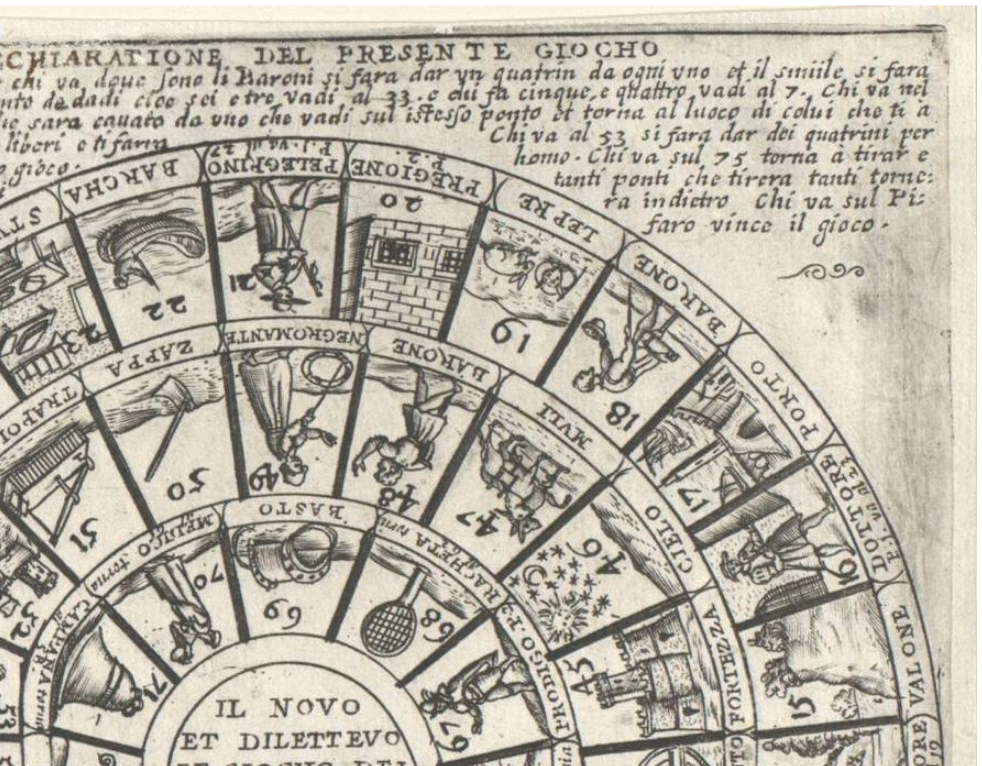 CHIARATIONE DEL PRESENTE GIOCHO
chi va, doue sono li Baroni si fara dar yn quatrin da ogni vno et il simile si fara
nto de dadi cioe sei e tre vadi al 33. e chi fa cinque, e quattro vadi al 7. Chi va nel
sara cauato da vno che vadi sul istesso ponto et torna al luoco di colui che ti à
liberi e ti farra Chi va al 53 si fara dar dei quatrini per
gioco. homo. Chi va sul 75 torna à tirar e
tanti ponti che tirera tanti torne:
ra indietro Chi va sul Pi:
faro vince il gioco.
BARCHA
22
PELEGRINO
21
PREGIONE
P. 2
20
LEPRE
19
BARONE
18
PORTO
17
DOTTORE
16
VALONE
15
23
TRAPOL
51
ZAPPA
50
NEGROMANTE
49
BARONE
48
MVLI
47
CIELO
46
FORTEZZA
45
52
CAMPANA
71
torna
70
BASTO
69
RACHETA
68
PRODIGO P. 2
67
53
ORE
19
TO
IL NOVO
ET DILETTEVO
LE GIOCHO DEL